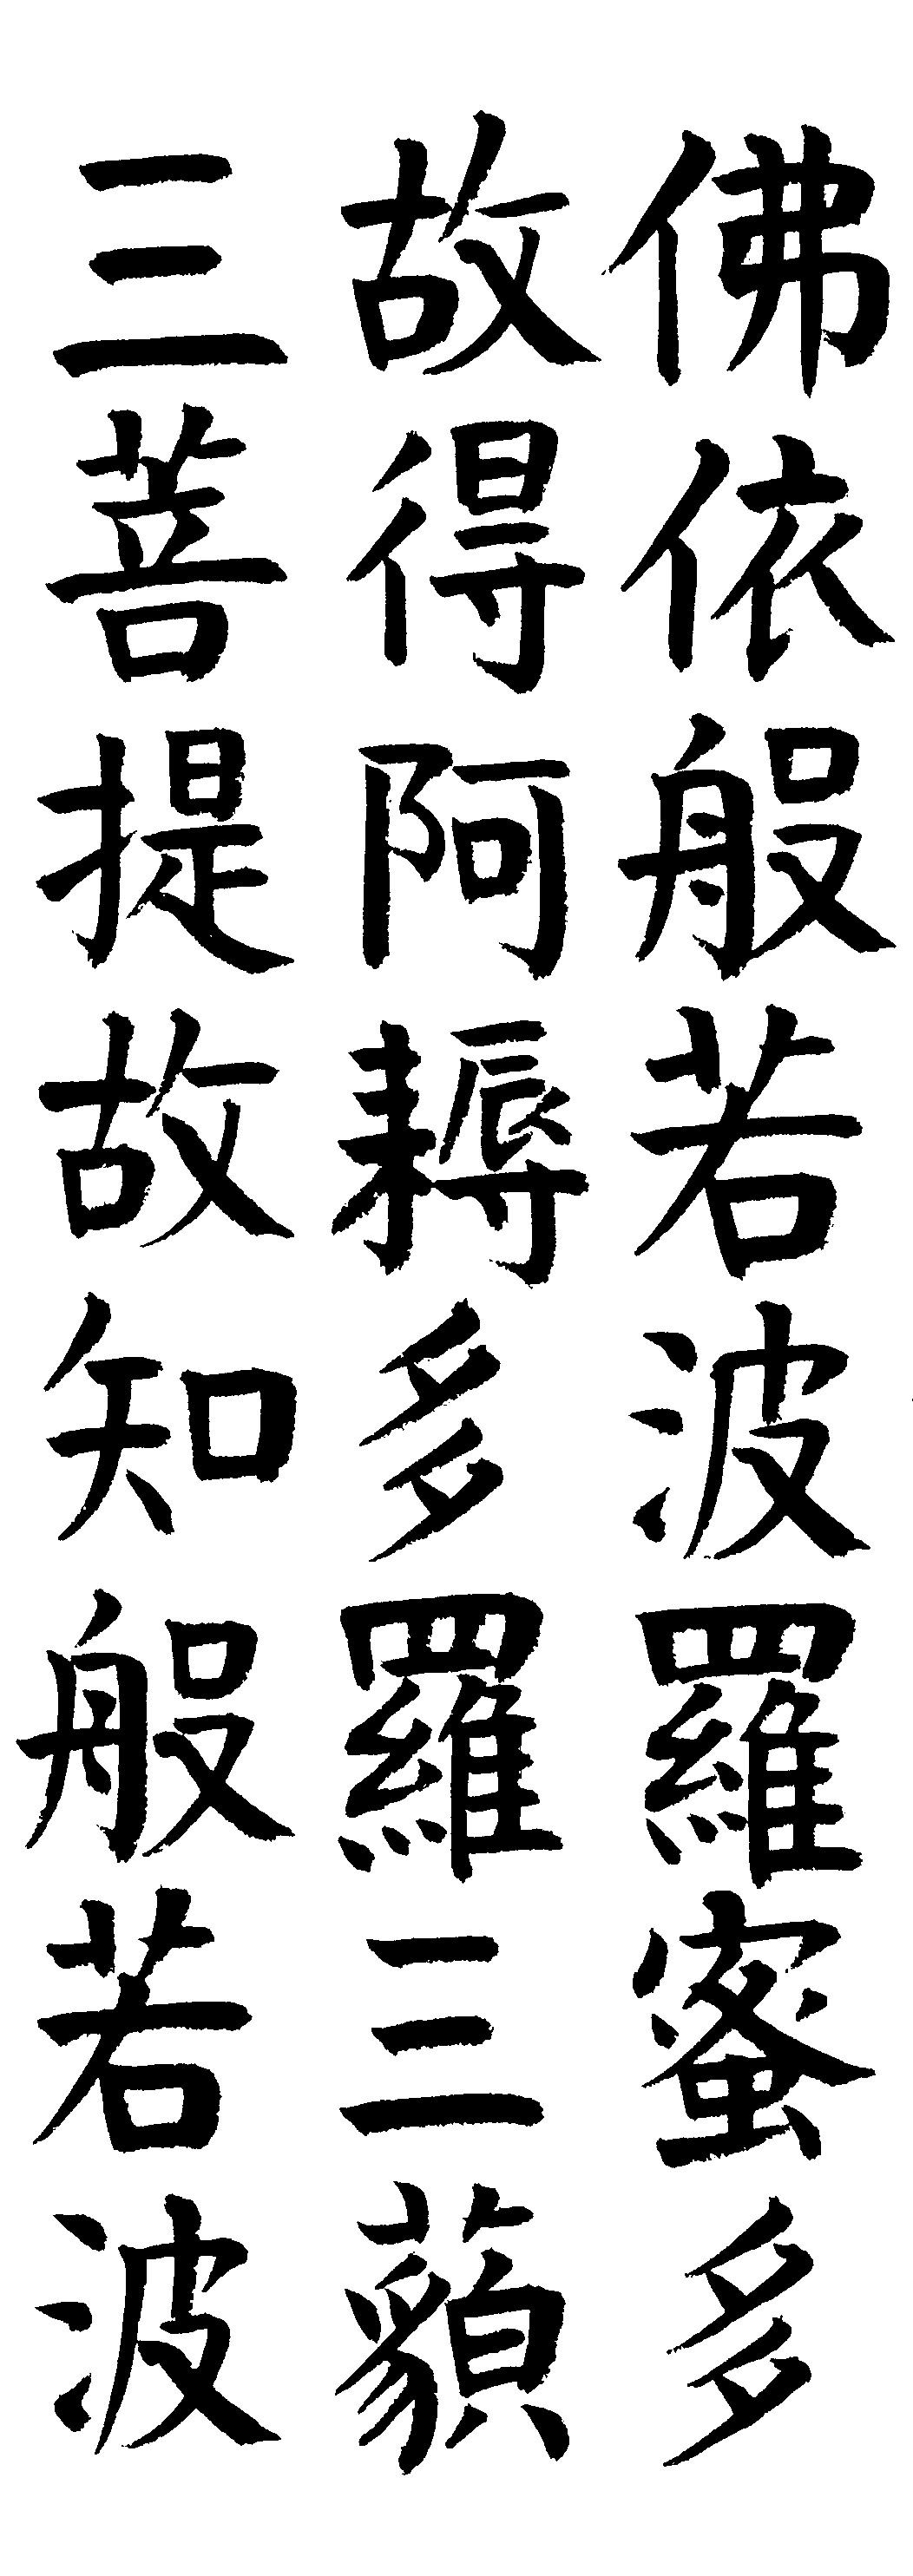 佛依般若波羅蜜多
故得阿耨多羅三藐
三菩提故知般若波